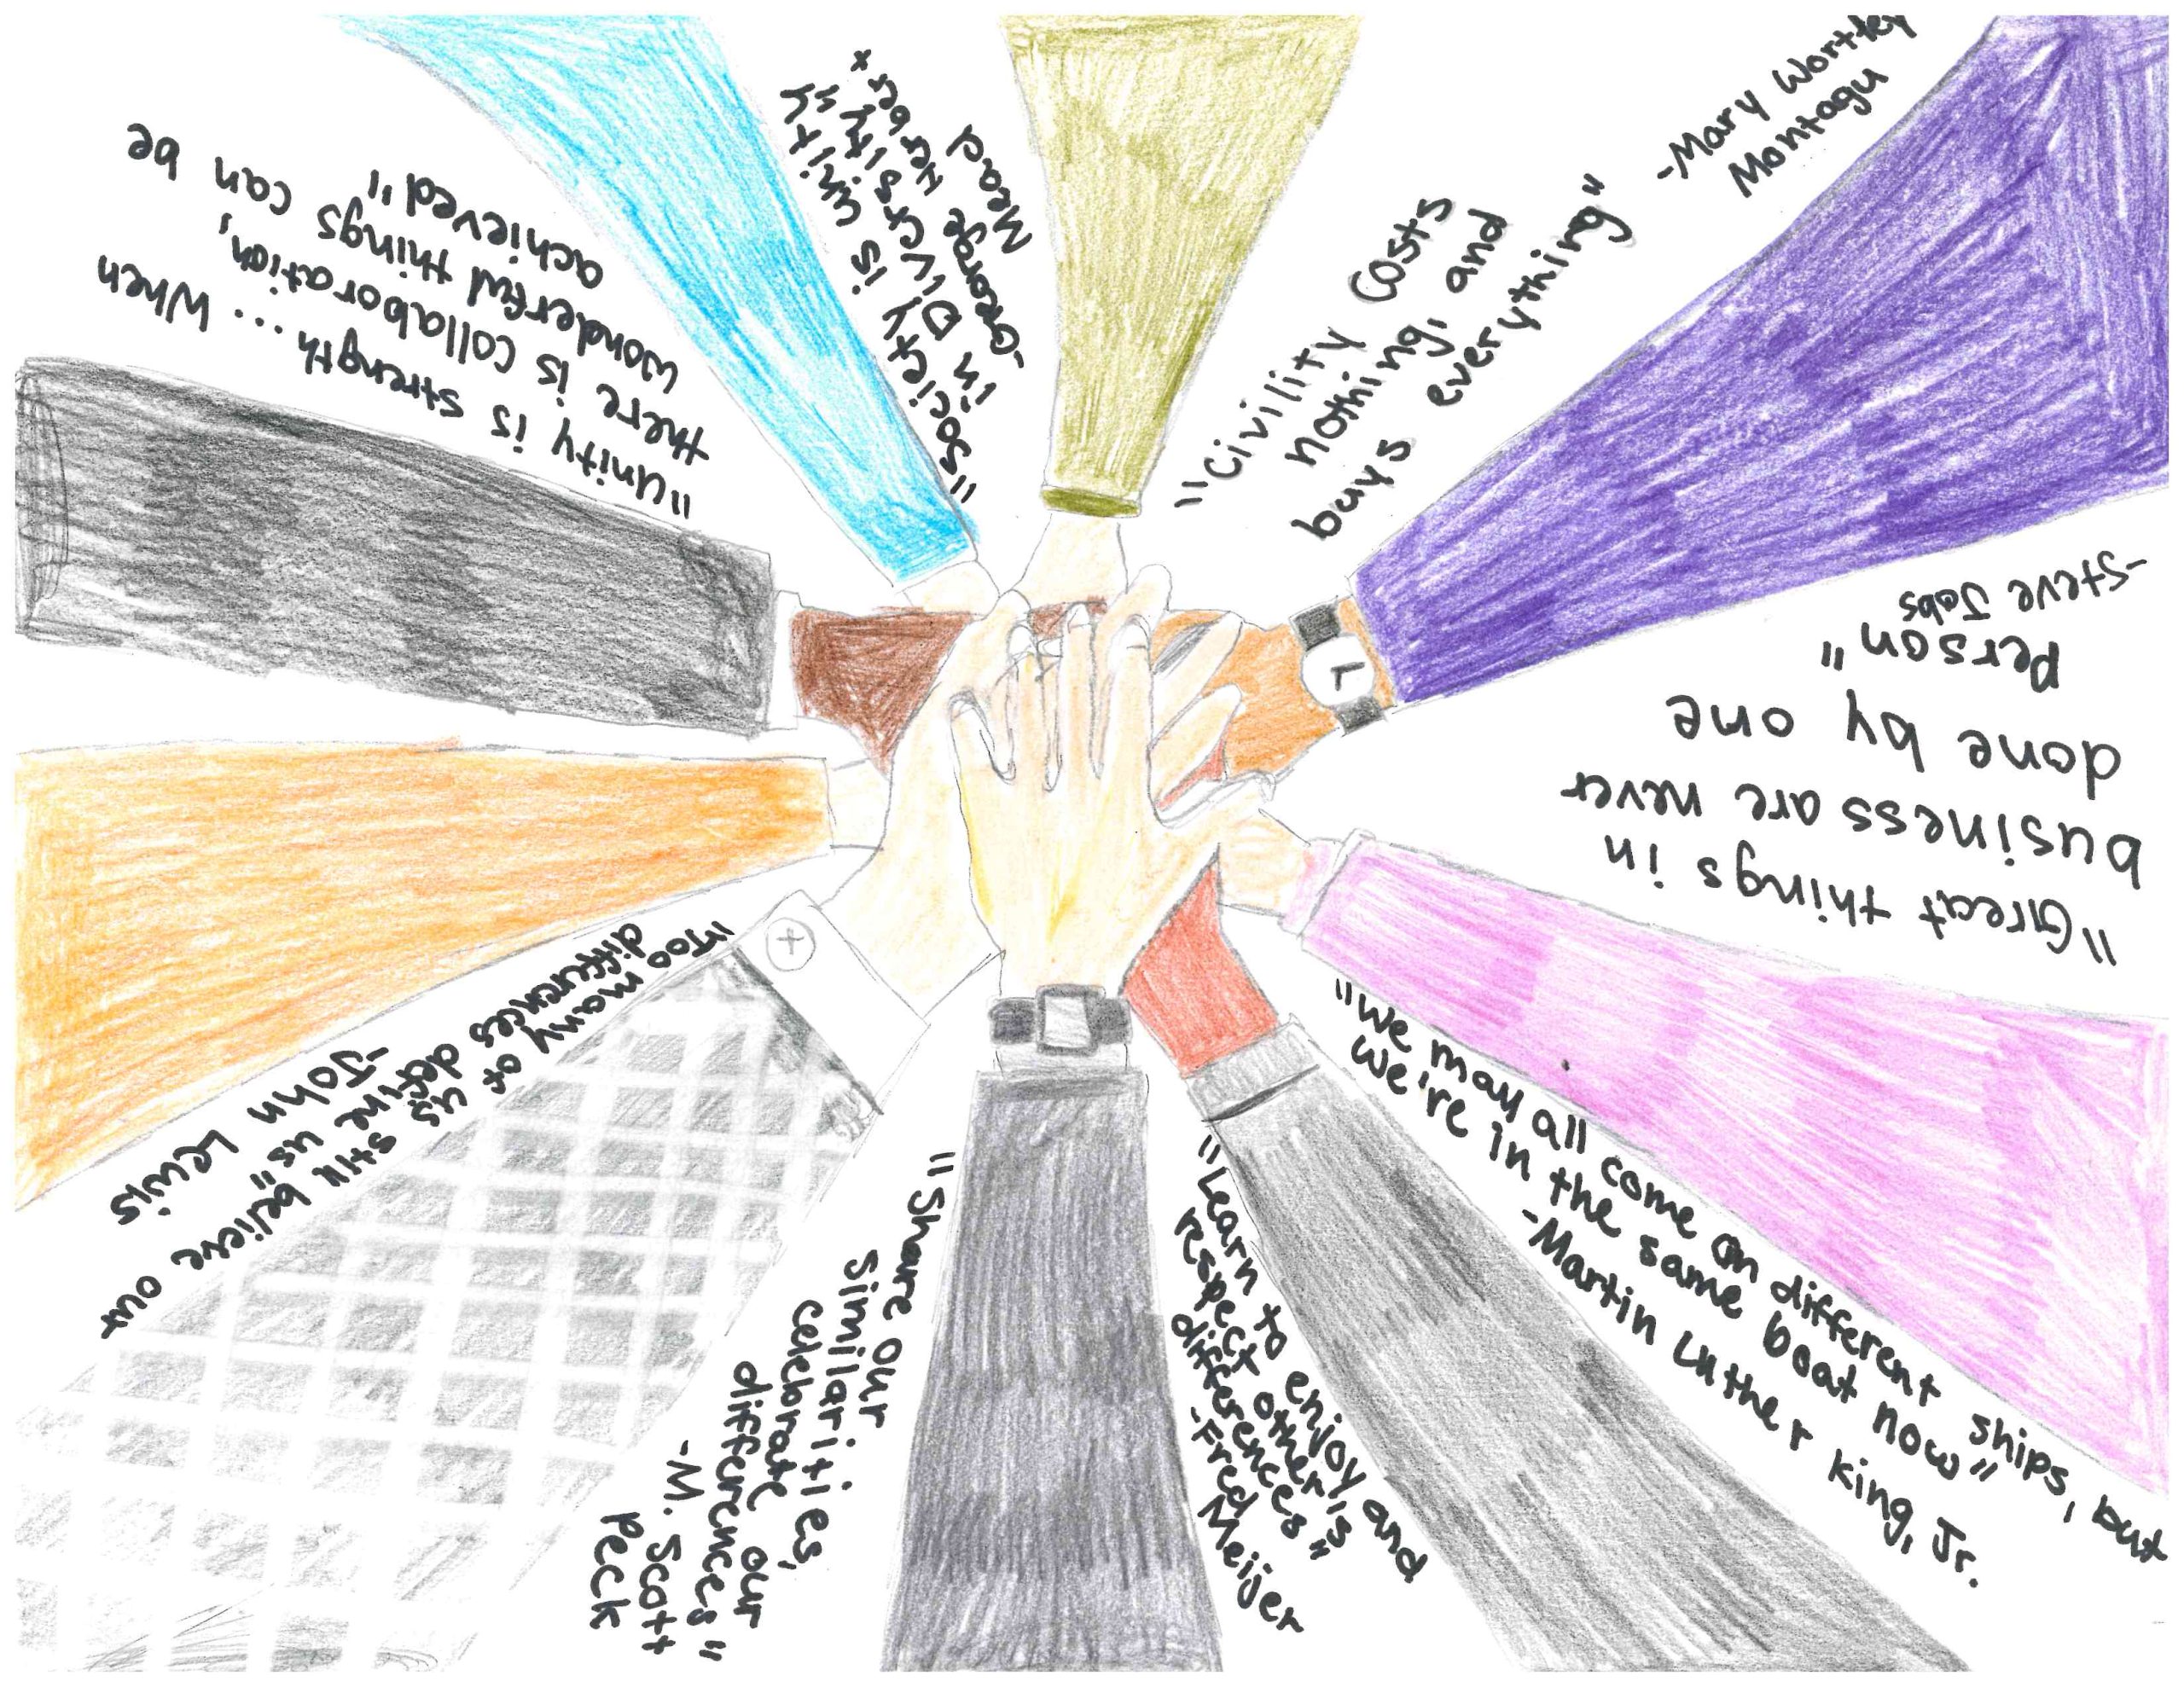 "Unity is strength ... when
there is collaboration,
wonderful things can be
achieved"
"Society is unity
in diversity"
-George Herbert
Mead
"Civility costs
nothing, and
buys everything"
-Mary Wortley
Montagu
"Great things in
business are never
done by one
person"
-Steve Jobs
"We may all come on different ships, but
we're in the same boat now"
-Martin Luther King, Jr.
"Learn to enjoy and
respect other's
differences"
-Fred Meijer
"Share our
Similarities,
celebrate our
differences"
-M. Scott
Peck
"Too many of us still believe our
differences define us"
-John Lewis